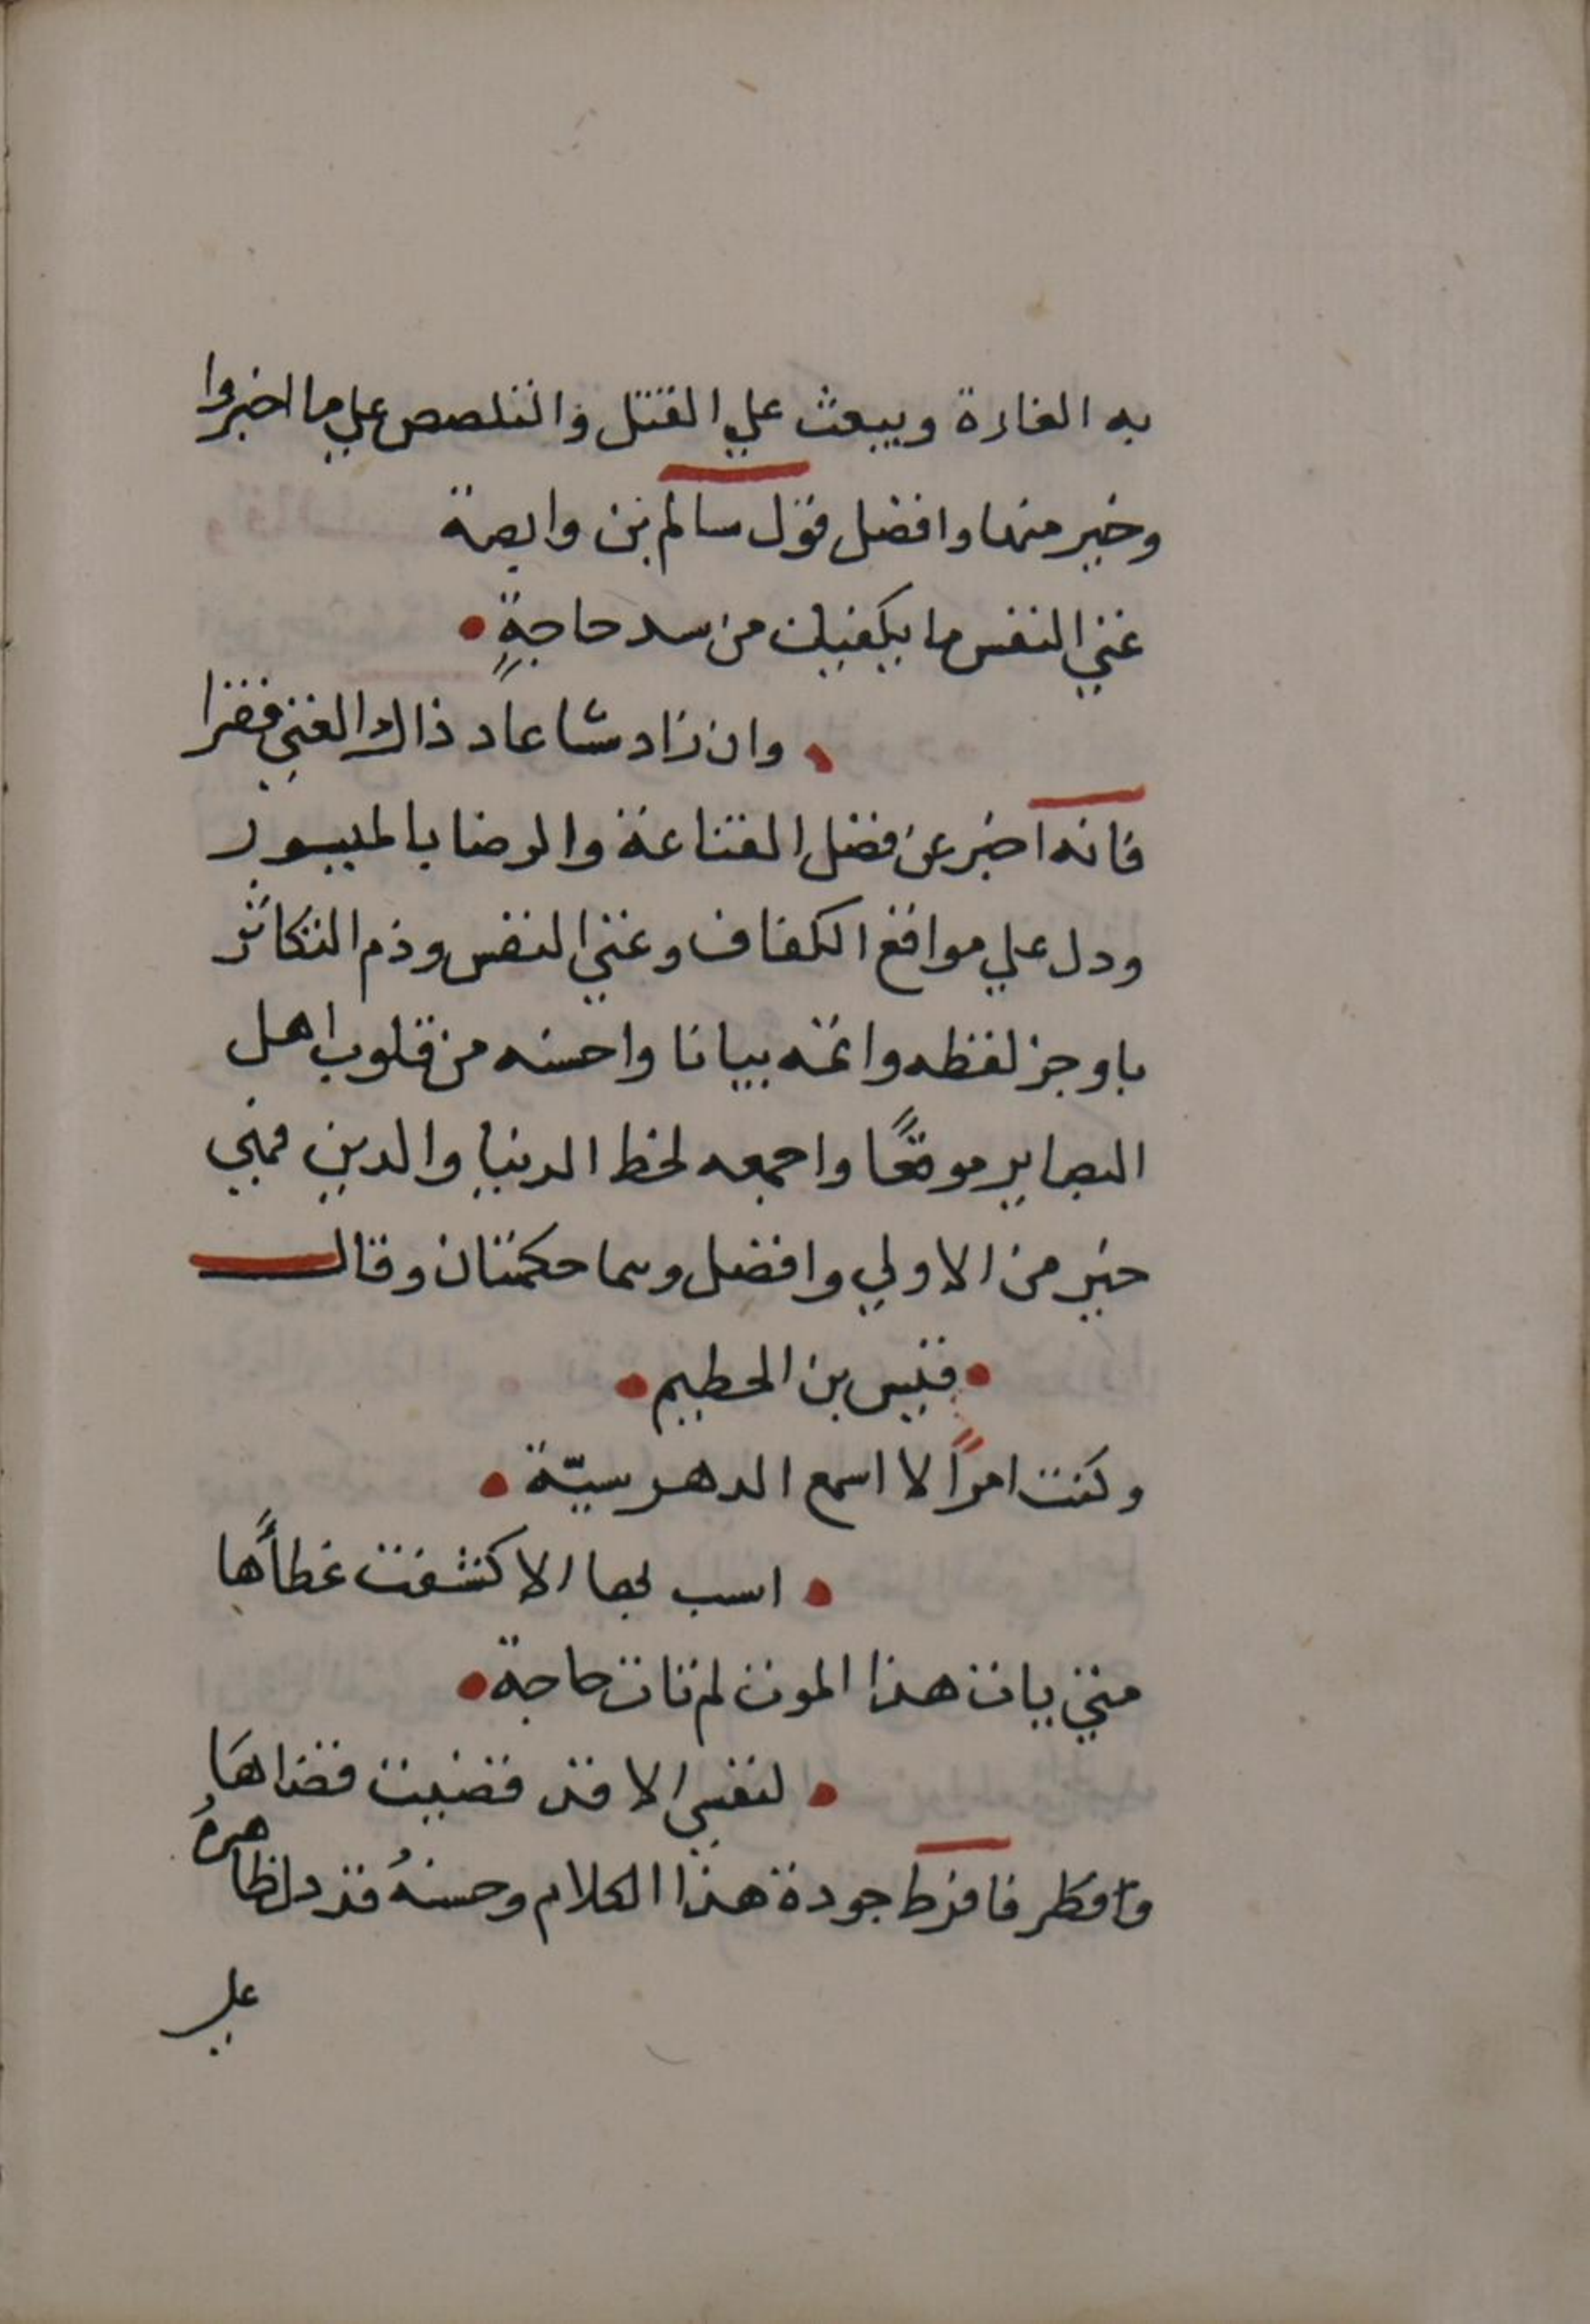 به الغارة ويبعث علي القتل والتلصص علي ما اخبروا
وخير منها وافضل قول سالم بن وابصة
غني النفس ما يكفيك من سد حاجةٍ
وان زاد شا عاد ذاك الغني فقرا
فانه اخبر عن فضل القناعة والرضا بالميسور
ودل علي مواقع الكفاف وغني النفس وذم التكاثر
باوجز لفظه واتمه بيانا واحسنه من قلوب اهل
البصاير موقعًا واجمعه لحظ الدنيا والدين فهي
خير من الاولي وافضل وهما حكمتان وقال
قيس بن الحطيم
وكنت امرًا لا اسمع الدهر سبّة
اسب بها الا كشفت غطأها
متي يات هذا الموت لم تات حاجة
لنفسي الا قد قضيت قضاهَا
فافرط جودة هذا الكلام وحسنهُ قد دل ظاهرهُ
علي